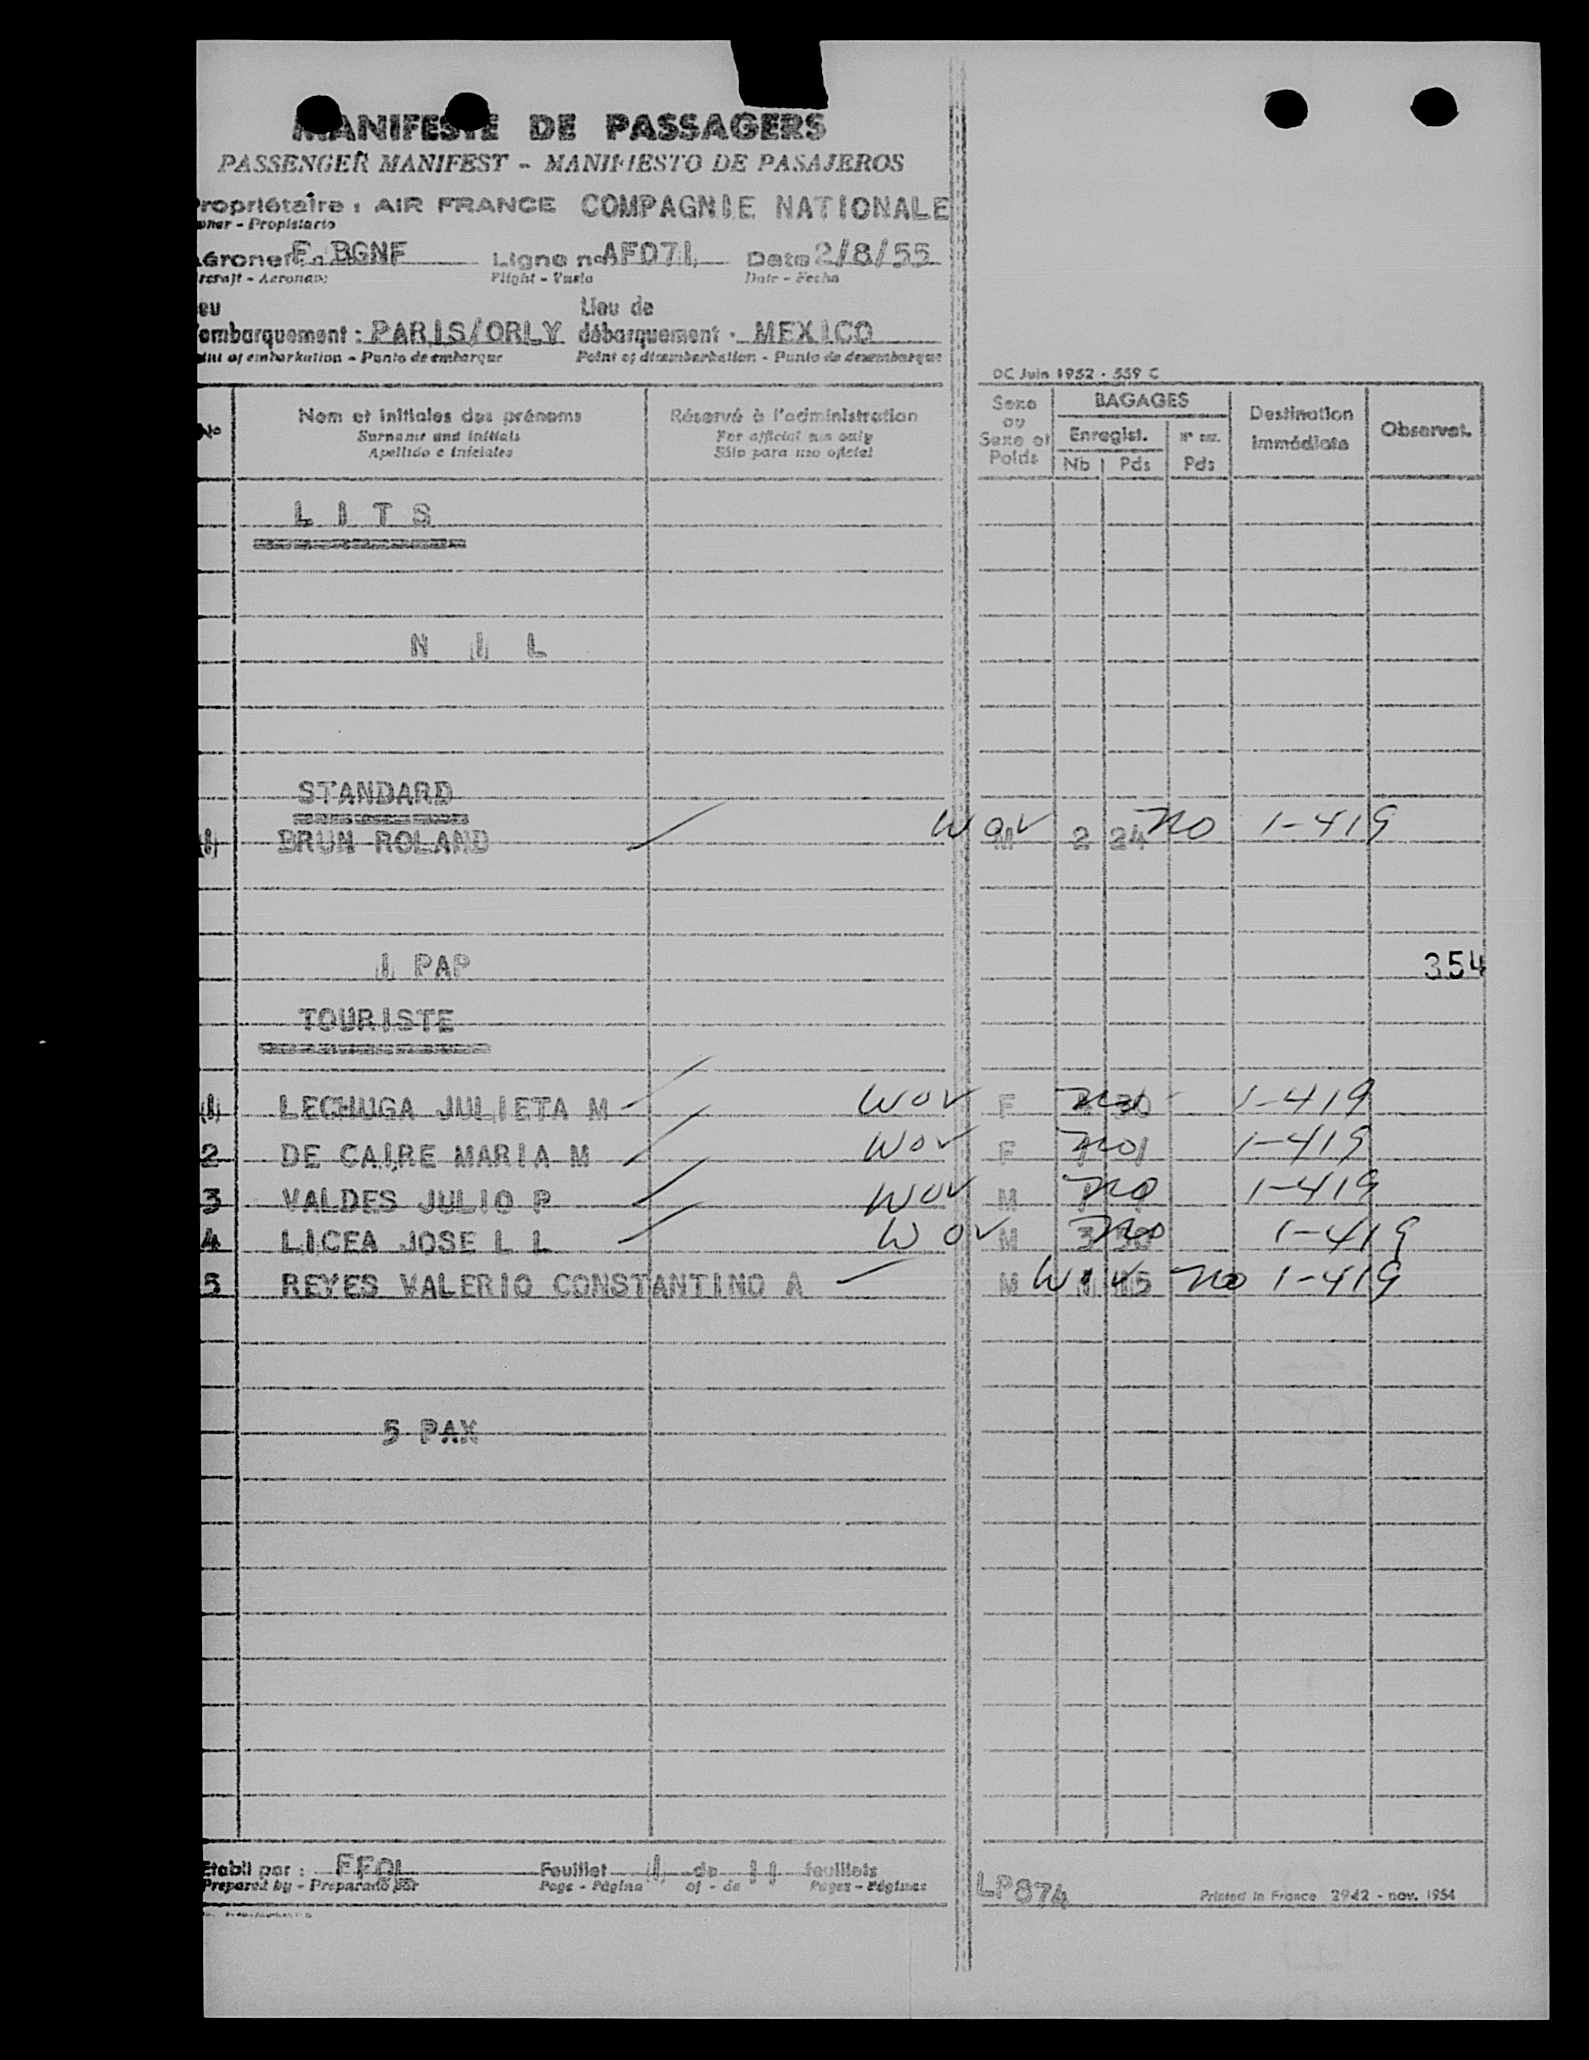 MANIFESTE DE PASSAGERS
PASSENGER MANIFEST - MANIFIESTO DE PASAJEROS
Propriétaire : AIR FRANCE COMPAGNIE NATIONALE
Owner - Propietario
F BGNF Ligne no AF071 Date 2/8/55
Aircraft - Aeronave Flight - Vuelo Date - Fecha
Lieu de
embarquement : PARIS/ORLY débarquement : MEXICO
Point of embarkation - Punto de embarque Point of disembarkation - Punto de desembarque
DC Juin 1952 - 559 C
No Nom et initiales des prénoms Réservé à l'administration Sexe ou Sexe et Poids BAGAGES Destination immédiate Observat.
Surname and initials For official use only Enregist.
Apellido e iniciales Sólo para uso oficial Nb Pds Pds
LITS
NIL
STANDARD
1 BRUN ROLAND wov M 2 24 no 1-419
1 PAP
354
TOURISTE
1 LECHUGA JULIETA M wov F no 30 1-419
2 DE CAIRE MARIA M wov F no 1-419
3 VALDES JULIO P wov M no 1-419
4 LICEA JOSE L L wov M 3 no 1-419
5 REYES VALERIO CONSTANTINO A M wov 15 no 1-419
5 PAX
Etabli par : Feuillet 1 de 11 feuillets
Prepared by - Preparado por Page - Página of - de Pages - Páginas
LP874 Printed in France 2942 - nov. 1954